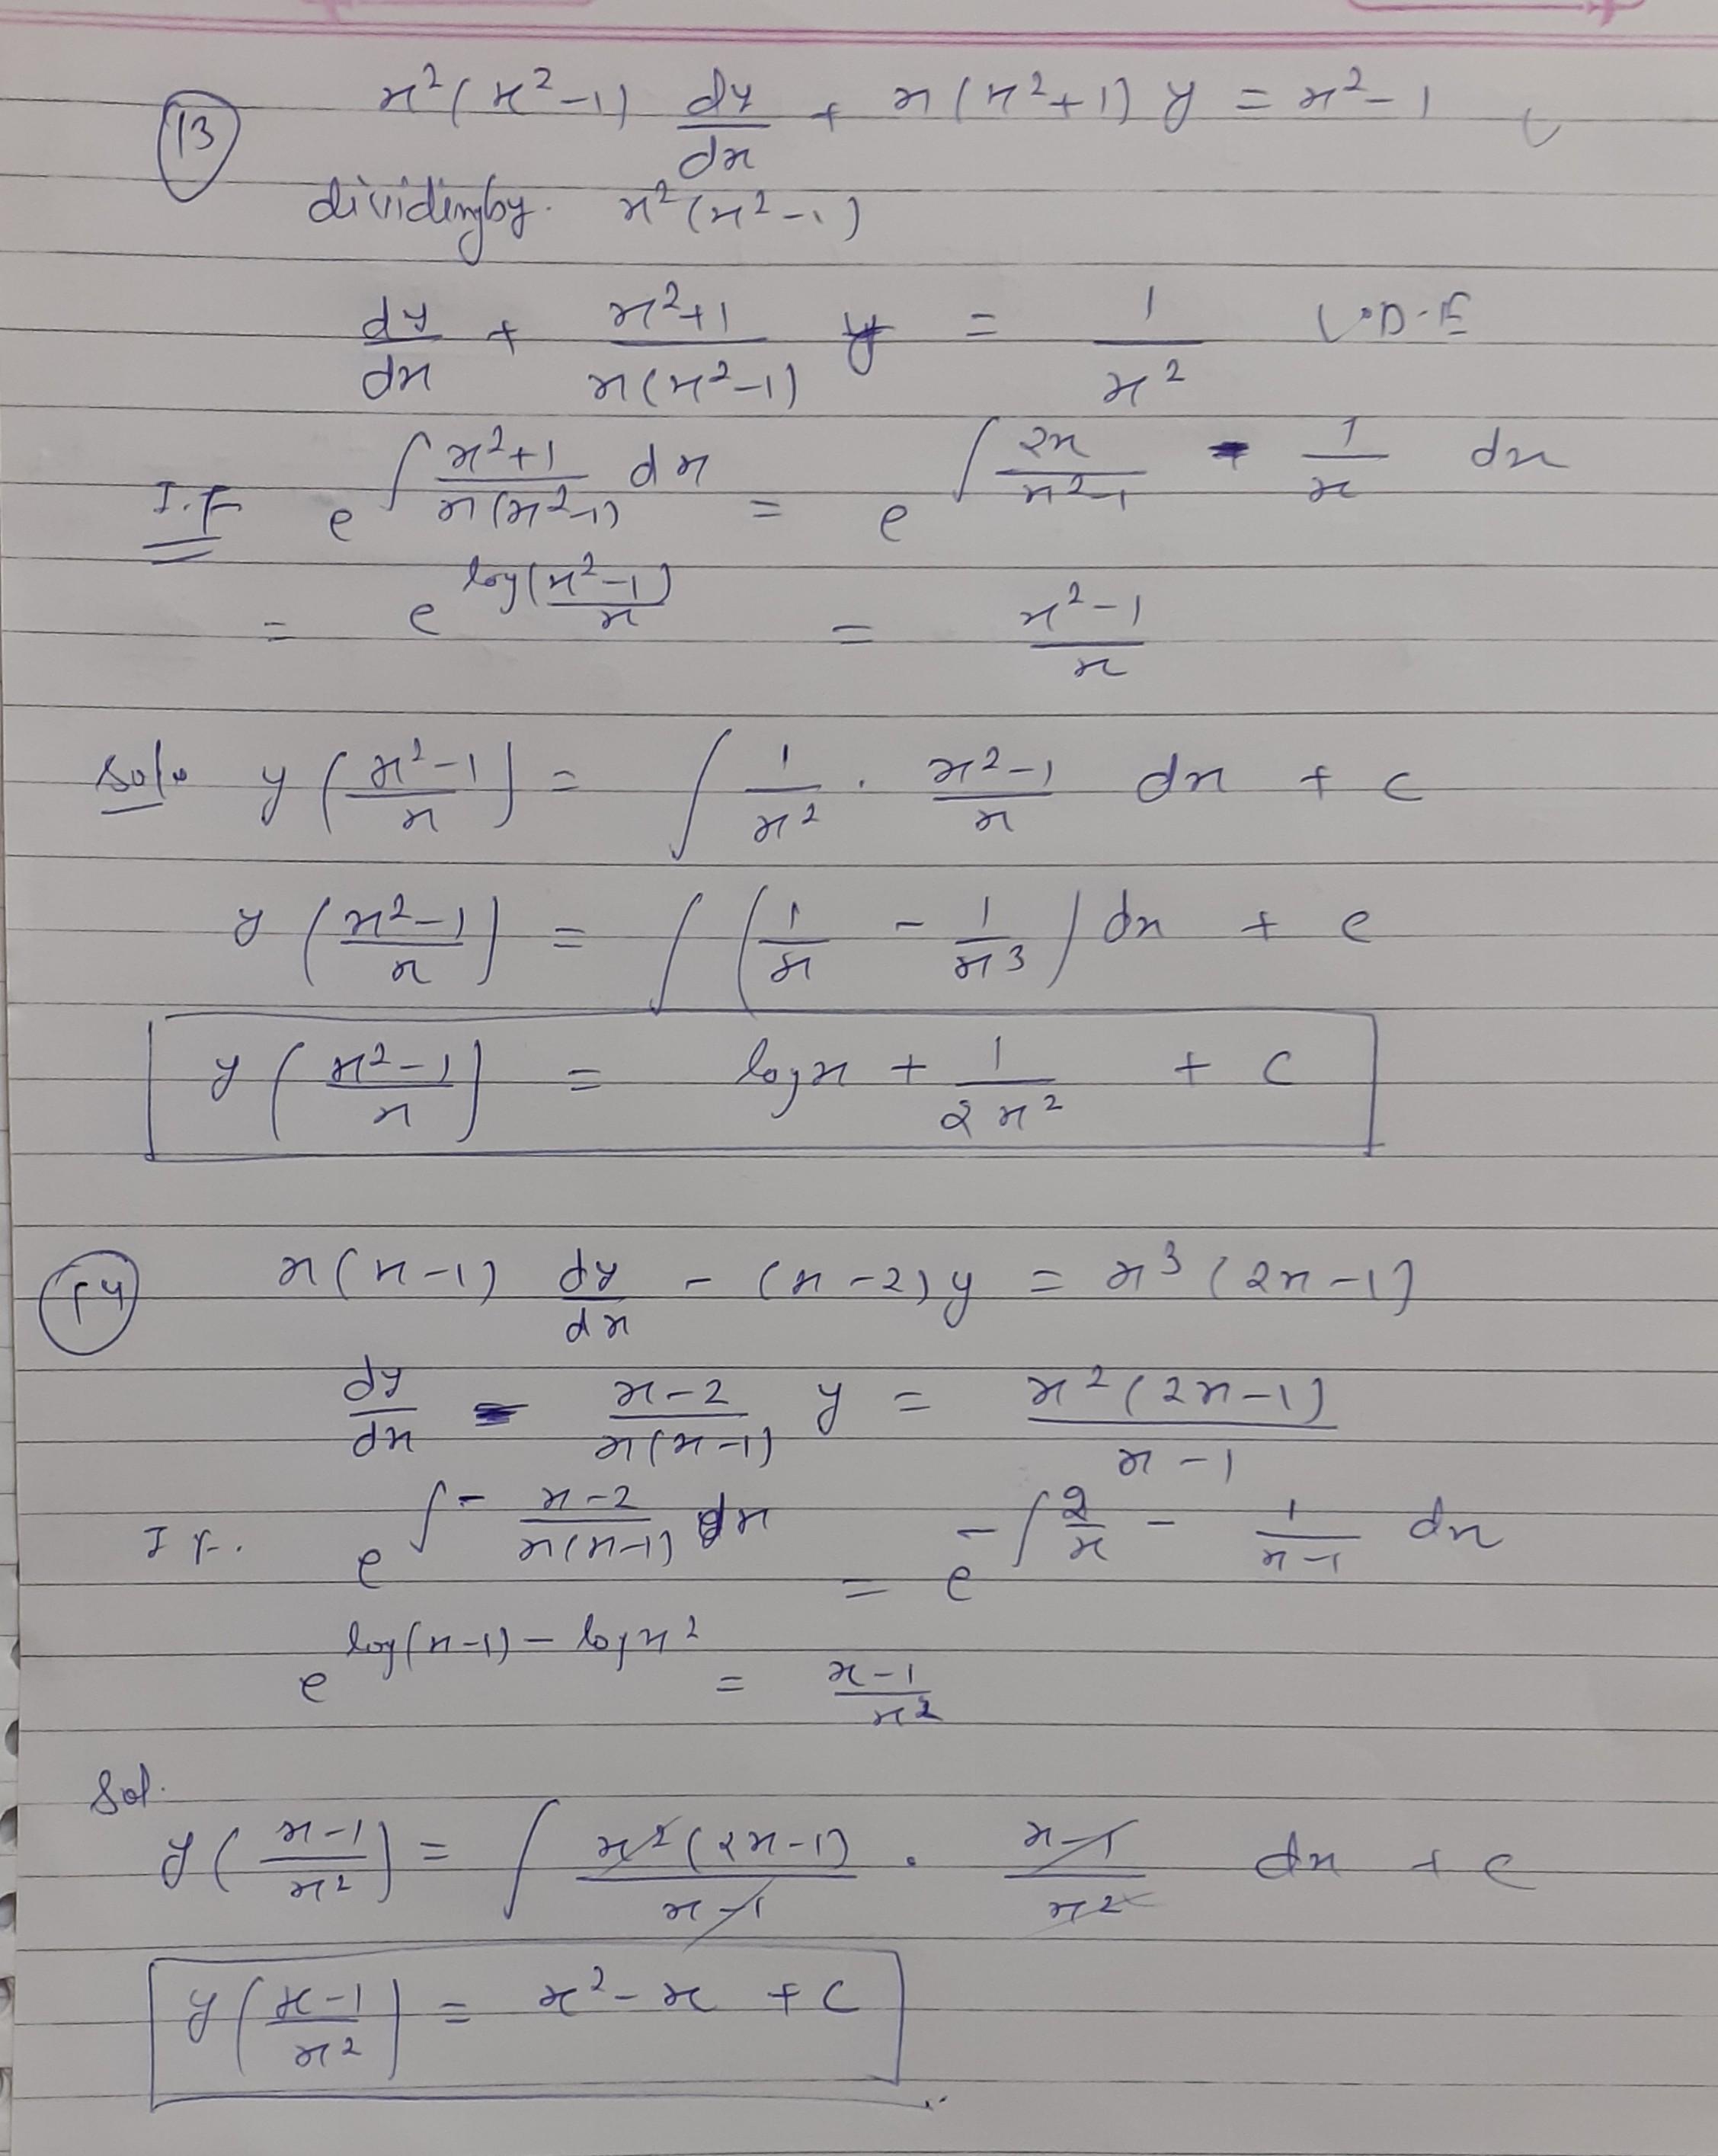 (13) x²(x²-1) dy/dx + x(x²+1) y = x²-1
dividing by. x²(x²-1)
dy/dx + (x²+1)/(x(x²-1)) y = 1/x² L.D.E
I.F e^∫ (x²+1)/(x(x²-1)) dx = e^∫ 2x/(x²-1) - 1/x dx
= e^log((x²-1)/x) = (x²-1)/x
Sol. y ((x²-1)/x) = ∫ 1/x² · (x²-1)/x dx + c
y ((x²-1)/x) = ∫ (1/x - 1/x³) dx + c
y ((x²-1)/x) = log x + 1/(2x²) + C
(14) x(x-1) dy/dx - (x-2) y = x³(2x-1)
dy/dx - (x-2)/(x(x-1)) y = x²(2x-1)/(x-1)
I.F. e^∫ - (x-2)/(x(x-1)) dx = e^-∫ 2/x - 1/(x-1) dx
e^log(x-1) - log x² = (x-1)/x²
Sol.
y ((x-1)/x²) = ∫ x²(2x-1)/(x-1) · (x-1)/x² dx + c
y ((x-1)/x²) = x² - x + C